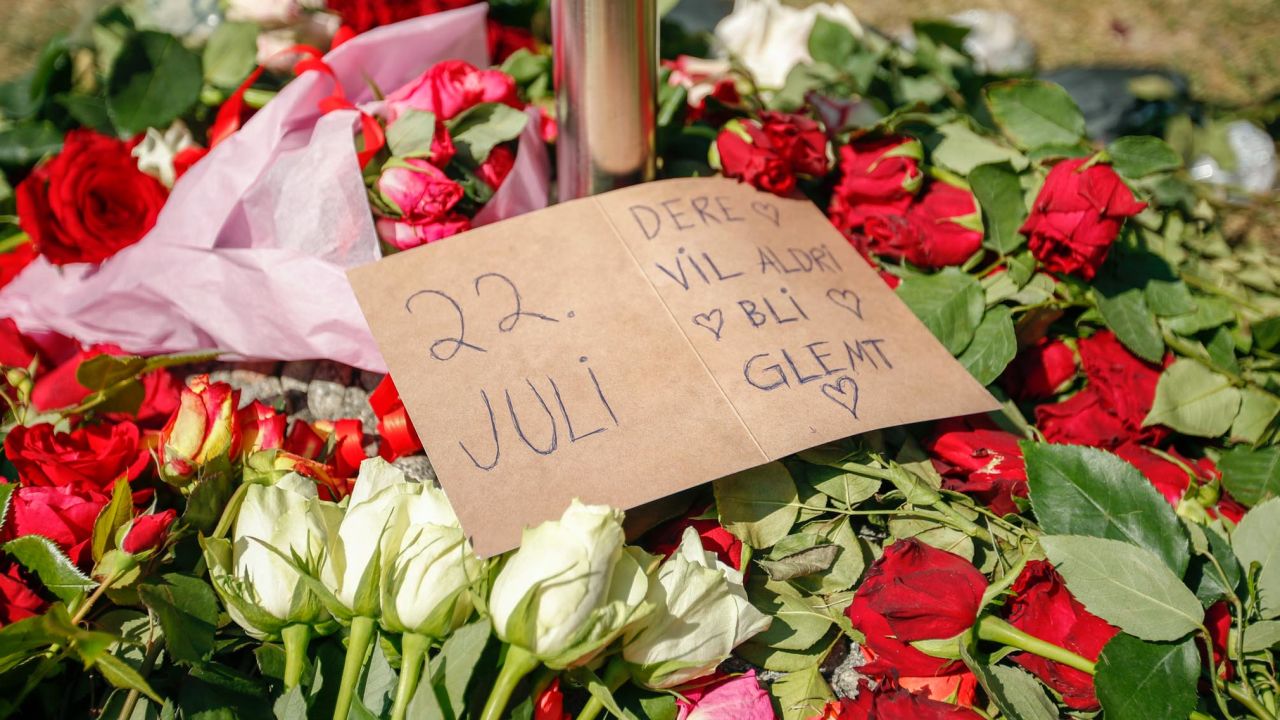 22.
JULI
DERE ♡
VIL ALDRI
♡ BLI ♡
GLEMT
♡